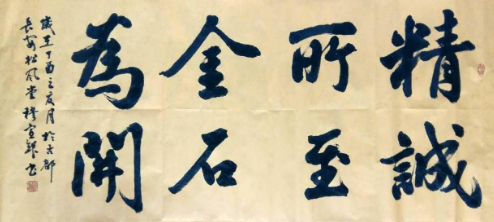 精誠
所至
金石
為開
歲在丁酉之夏月於古都
長安松風堂穆宣鋒書